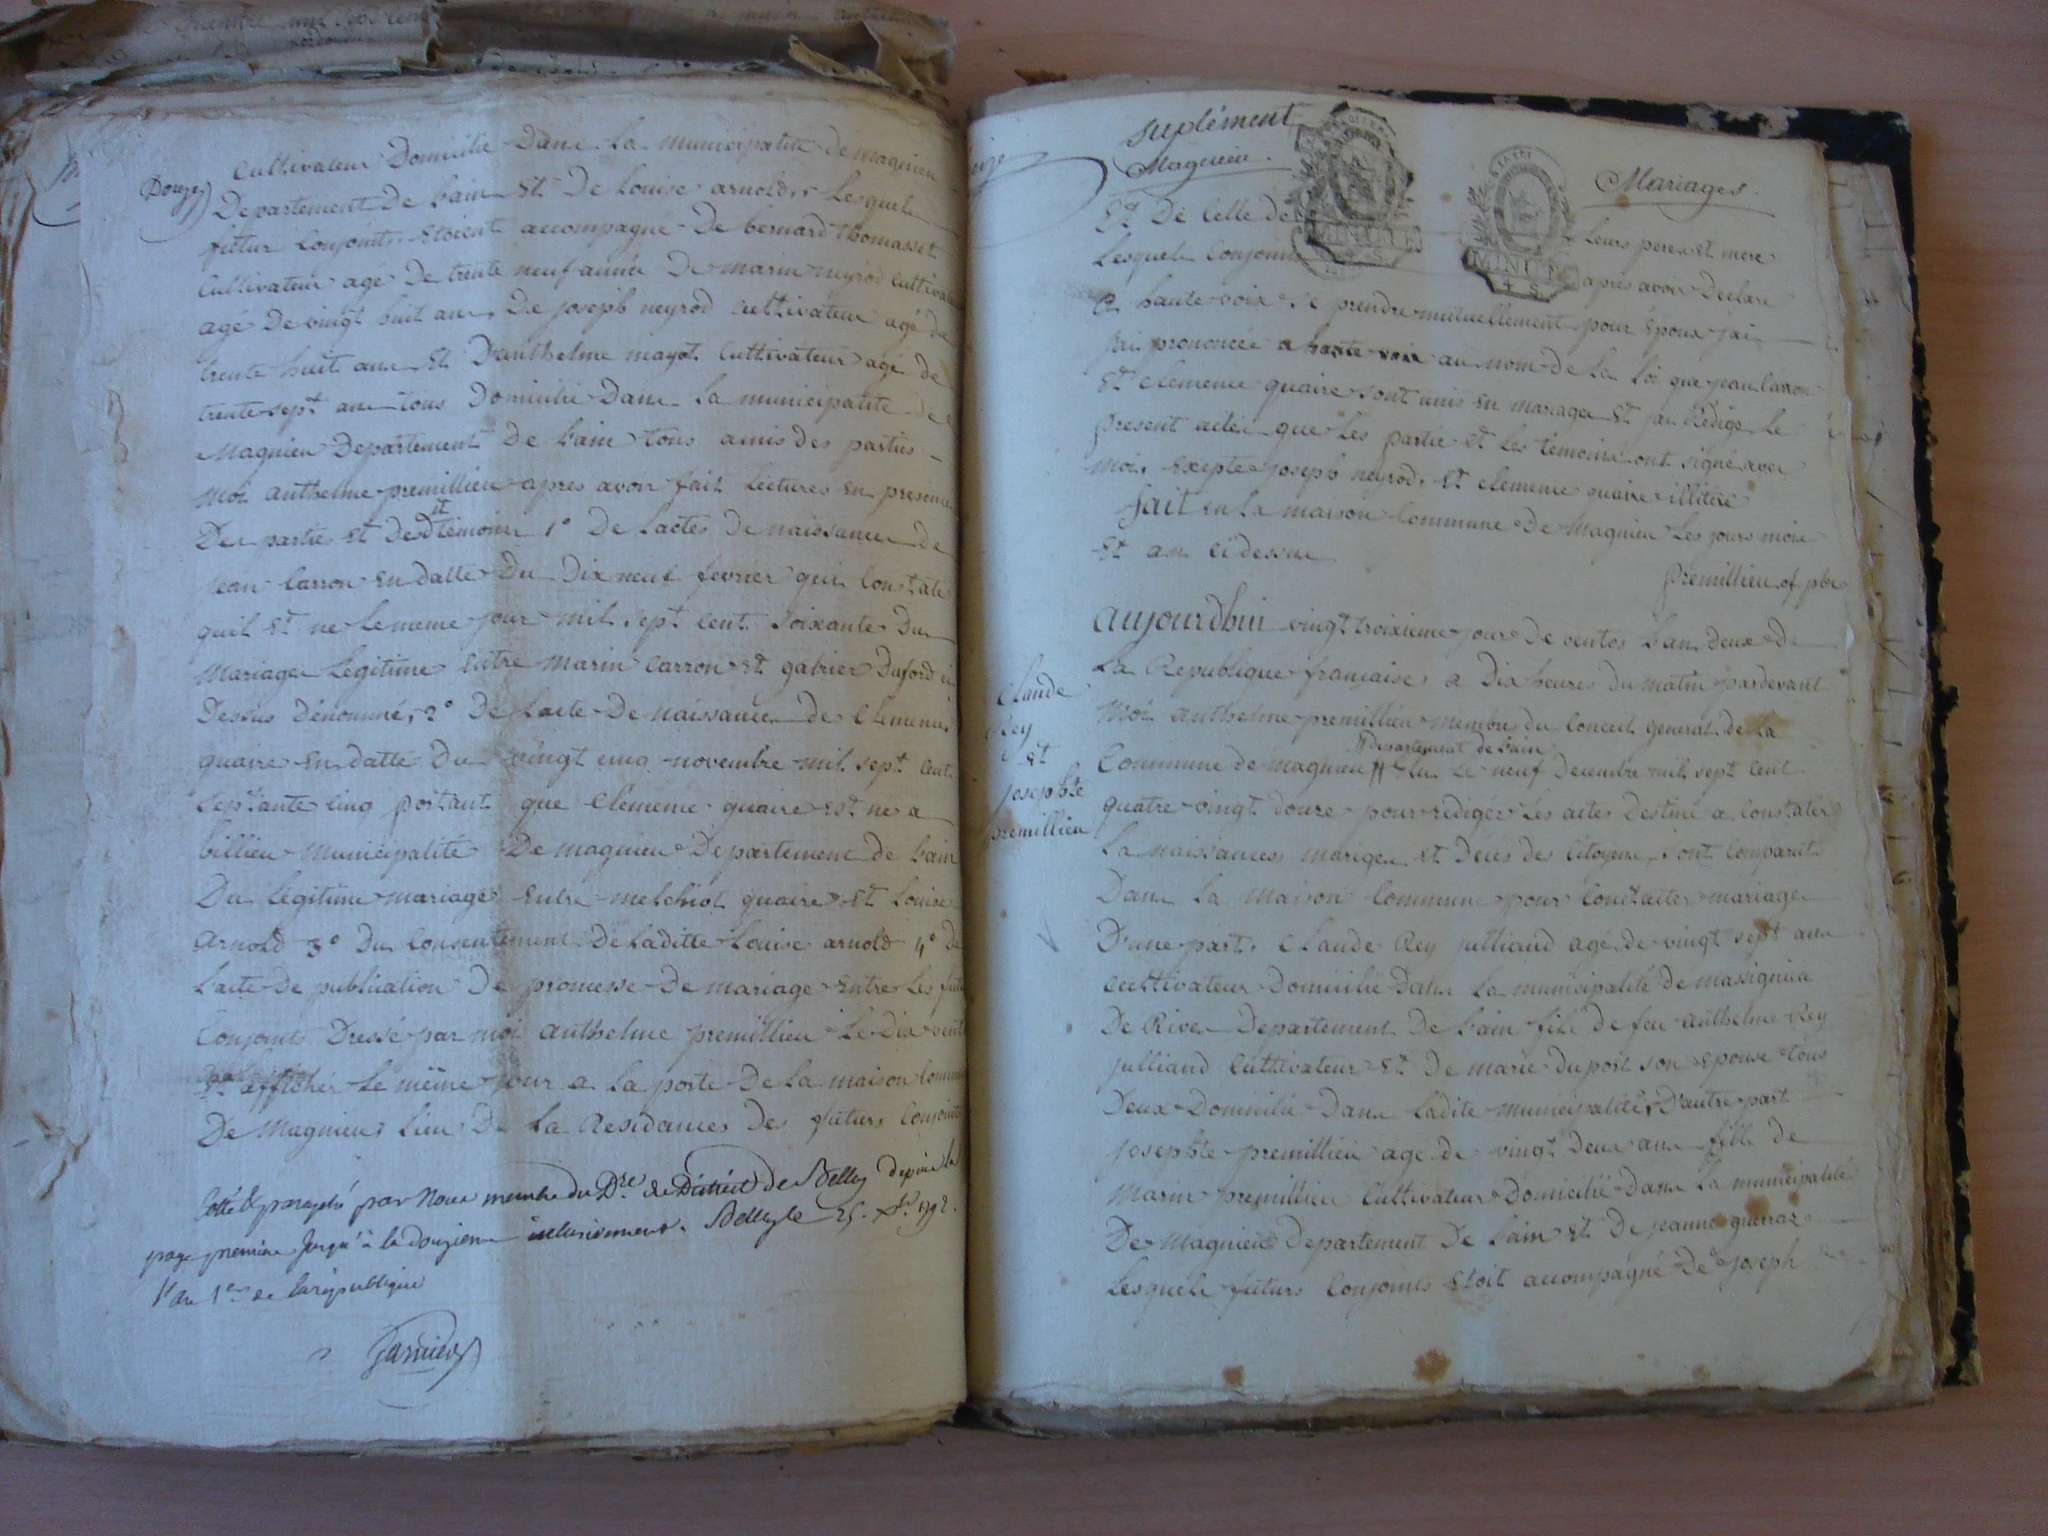 Douze
Cultivateur Domicilié Dans La municipalité de magnieu
Departement De Lain Et De Louise arnold, Lesquels
futur Conjoints Etoient accompagné De bernard thomasset
Cultivateur agé De trente neuf année De marin neyrod Cultiva
agé De vingt huit ans, De joseph neyrod Cultivateur agé de
trente huit ans Et D'anthelme mayot Cultivateur agé de
trente sept ans tous Domicilié Dans La municipalité De
Magnieu Departement De Lain tous amis des parties
Moi anthelme premillieu apres avoir fait Lectures En presence
Des partie Et Desdt témoins 1° De Lactes De naissances de
jean Carron En datte Du Dix neuf fevrier qui Constate
quil Et ne le meme jour mil sept Cent soixante Du
Mariage Legitime Entre marin Carron Et gabrier Duford ci
Dessus Dénommé, 2° De Lacte De naissances de Clemence
quaire En datte Du vingt cinq novembre mil sept Cent
septante cinq portant que Clémence quaire Est ne a
billieu municipalité De magnieu Departement de Lain
Du Légitime mariage Entre melchiot quaire Et Louise
Arnold 3° Du Consentement De Laditte Louise arnold 4° De
Lacte De publication De promesse De mariage Entre Les futu
Conjoints Dressé par moi anthelme premillieu Le Dix vent
Et affichér Le même jour a La porte De La maison Commu
De Magnieu Lieu De La Residances Des futurs Conjoints
Cotté & paraphé par Nous membre du Dre du District de Belley depuis la
page premiere Jusqu'à la douzieme inclusivement. Belley le 25. 1792.
l'an 1er de la république
Garnier
suplément
Magnieu.
Mariages.
Et De Celle de Leurs peres et mere
Lesquels Conjoint après avoir Declaré
a haute voix Se prendre mutuellement pour Epoux jai
jai prononcée a haute voix au nom De La Loi que jean Carron
Et Clemence quaire sont unis En mariages Et jai Rédigé Le
present actes que Les partie Et Les témoins ont signé avec
moi, Excepté joseph neyrod, Et clemence quaire illitéré
fait En La maison Commune De magnieu Les jours mois
Et an cidessus
premillieu of. pbe
MINUTE
4 S.
Claude
Rey
Et
josephte
premillieu
aujourdhui vingt troixieme jour De ventos Lan Deux De
La Republique francaise, a Dix heures Du matin pardevant
Moi anthelme premillieu membre du Conceil General de La
Commune de magnieu // Departement de Lain // Elu Le neuf decembre mil sept Cent
quatre vingt douze pour rediger Les actes Destiné a Constater
La naissances mariges Et Déces des Citoyens, sont Comparut
Dans La Maison Commune pour Contracter mariage
D'une part, Claude Rey julliand agé de vingt sept ans
Cultivateur Domicilié Dans La municipalité de massignieu
De Rives Departement De Lain fils de feu anthelme Rey
julliand Cultivateur Et De marie Duport son Epouse tous
Deux Domicilié Dans Ladite municipalité, D'autre part
josephte premillieu agé de vingt Deux ans fille de
marin premillieu Cultivateur Domicilié Dans La municipalité
De magnieu Departement De Lain Et De jeanne guerraz
Lesquels futurs Conjoints Etoit accompagné De joseph